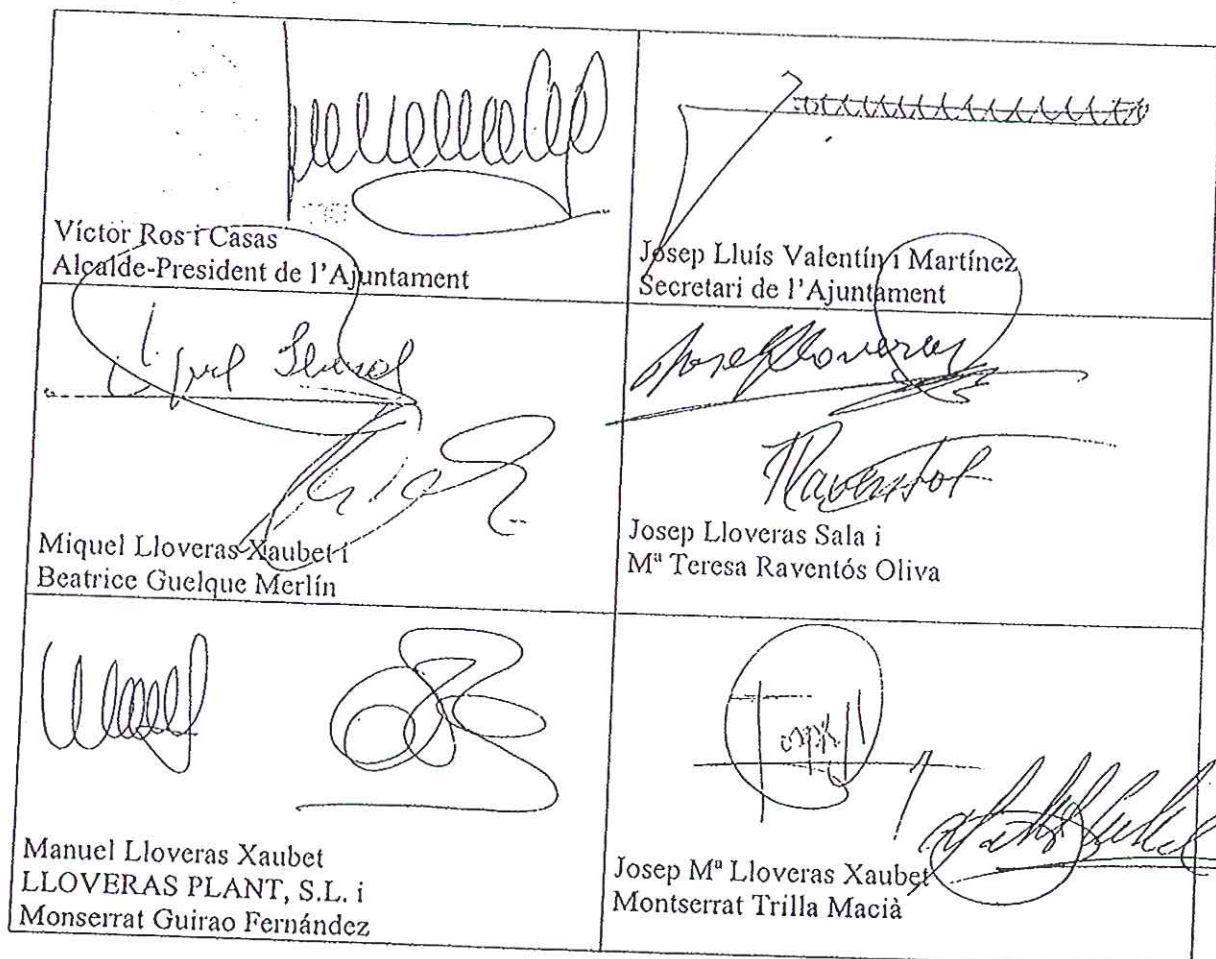 Víctor Ros i Casas
Alcalde-President de l'Ajuntament
Josep Lluís Valentín i Martínez
Secretari de l'Ajuntament
Josep Lloveras
Raventós
Miquel Lloveras Xaubet i
Beatrice Guelque Merlín
Josep Lloveras Sala i
Mª Teresa Raventós Oliva
Manuel Lloveras Xaubet
LLOVERAS PLANT, S.L. i
Monserrat Guirao Fernández
Josep Mª Lloveras Xaubet
Montserrat Trilla Macià